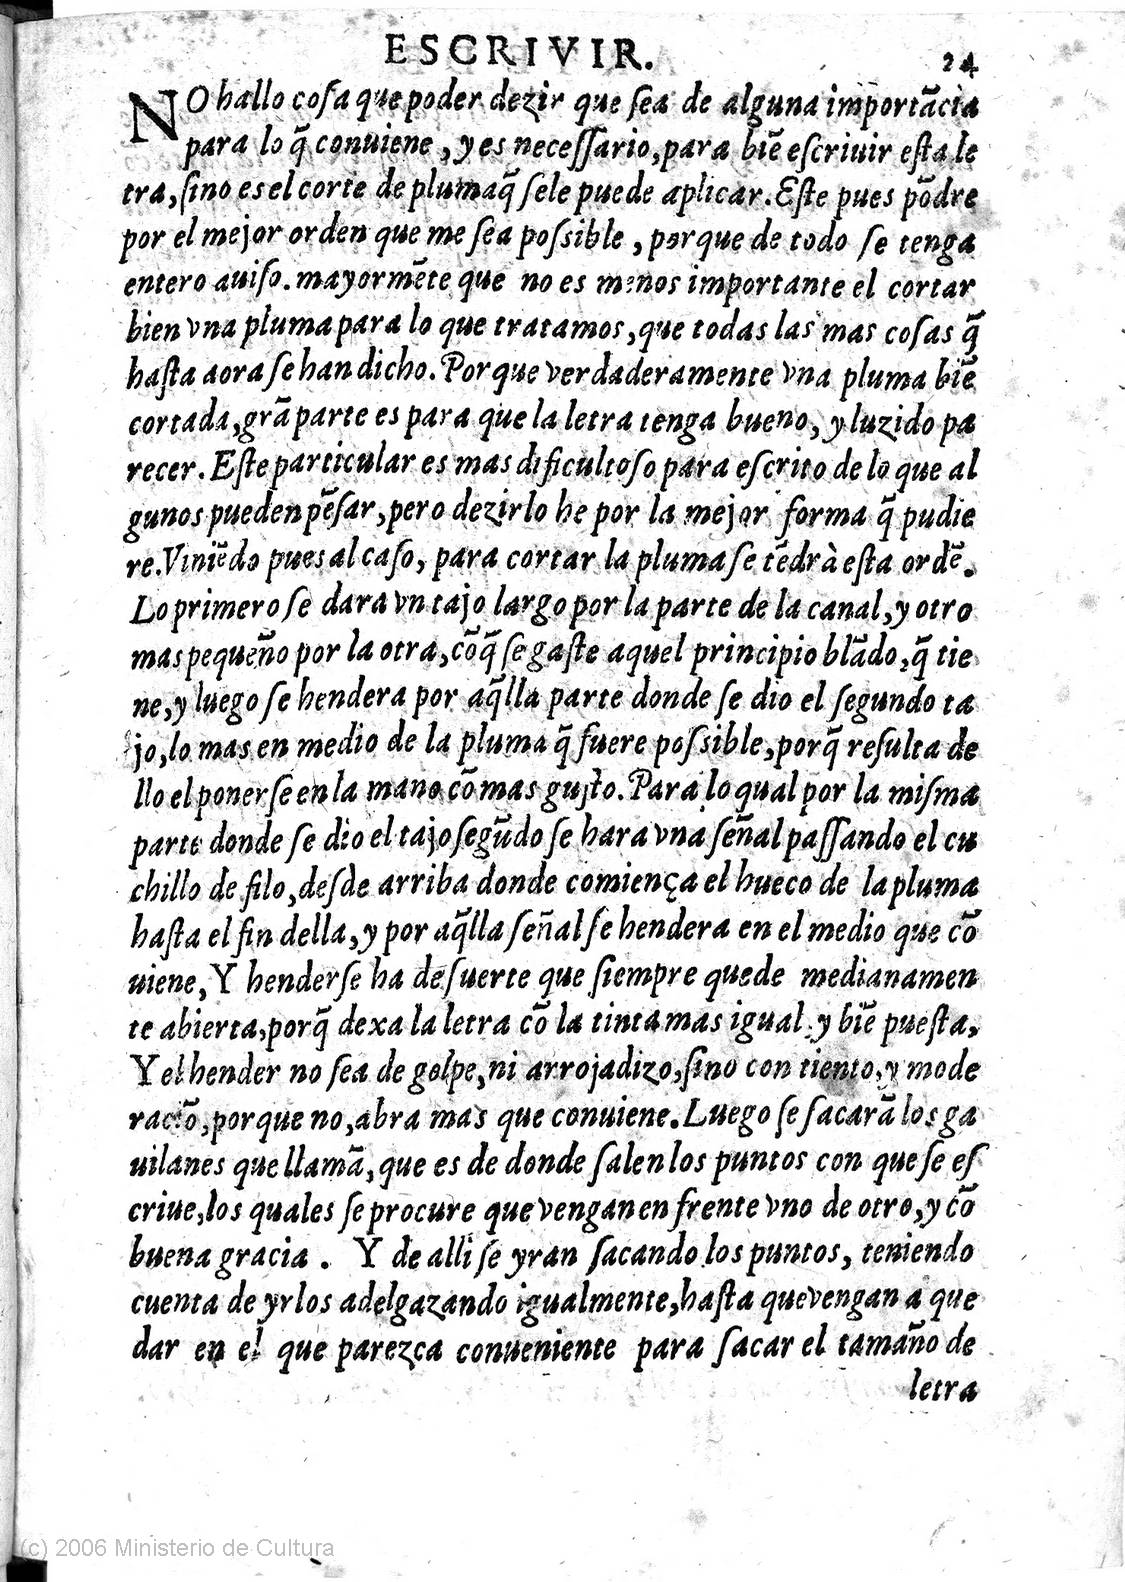 ESCRIVIR. 24
NO hallo cosa que poder dezir que ſea de alguna importãcia
para lo q̃ conuiene, y es neceſſario, para biẽ eſcriuir eſta le
tra, ſino es el corte de pluma q̃ ſele puede aplicar. Eſte pues põdre
por el mejor orden que me ſea poſsible, porque de todo ſe tenga
entero auiſo. mayormẽte que no es menos importante el cortar
bien vna pluma para lo que tratamos, que todas las mas coſas q̃
haſta aora ſe han dicho. Porque verdaderamente vna pluma biẽ
cortada, grã parte es para que la letra tenga bueno, y luzido pa
recer. Eſte particular es mas dificultoſo para eſcrito de lo que al
gunos pueden pẽſar, pero dezirlo he por la mejor forma q̃ pudie
re. Viniẽdo pues al caſo, para cortar la pluma ſe tẽdrà eſta ordẽ.
Lo primero ſe dara vn tajo largo por la parte de la canal, y otro
mas pequeño por la otra, cõ q̃ ſe gaſte aquel principio blãdo, q̃ tie
ne, y luego ſe hendera por aq̃lla parte donde ſe dio el ſegundo ta
jo, lo mas en medio de la pluma q̃ fuere poſsible, porq̃ reſulta de
llo el ponerſe en la mano cõ mas guſto. Para lo qual por la miſma
parte donde ſe dio el tajo ſegũdo ſe hara vna ſeñal paſſando el cu
chillo de filo, deſde arriba donde comiença el hueco de la pluma
haſta el fin della, y por aq̃lla ſeñal ſe hendera en el medio que cõ
uiene, Y henderſe ha de ſuerte que ſiempre quede medianamen
te abierta, porq̃ dexa la letra cõ la tinta mas igual y biẽ pueſta,
Y el hender no ſea de golpe, ni arrojadizo, ſino con tiento, y mode
raciõ, porque no, abra mas que conuiene. Luego ſe ſacarã los ga
uilanes que llamã, que es de donde ſalen los puntos con que ſe eſ
criue, los quales ſe procure que vengan en frente vno de otro, y cõ
buena gracia. Y de alli ſe yran ſacando los puntos, teniendo
cuenta de yrlos adelgazando igualmente, haſta que vengan a que
dar en el que parezca conueniente para ſacar el tamaño de
letra
(c) 2006 Ministerio de Cultura